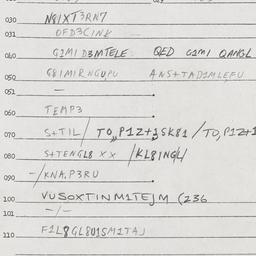 030 N8IXT3RN7
031 OFD3CINK
040 G1MI D3MTELE. QED G1MI QANGL
050 G8IMIRNGUPU ANSTTAD1MLEFU
051 —
060 TEMP3
070 S+TIL/ TO,,P1Z+1SK81 /TO,P1Z+1
080 S+TENGL8 XX /KL8ING4/
090 -/KNA.P3RU
100 VUSOXTINM1TEJM (236
101 -/-
110 F1L8GL8U1SM1TAJ